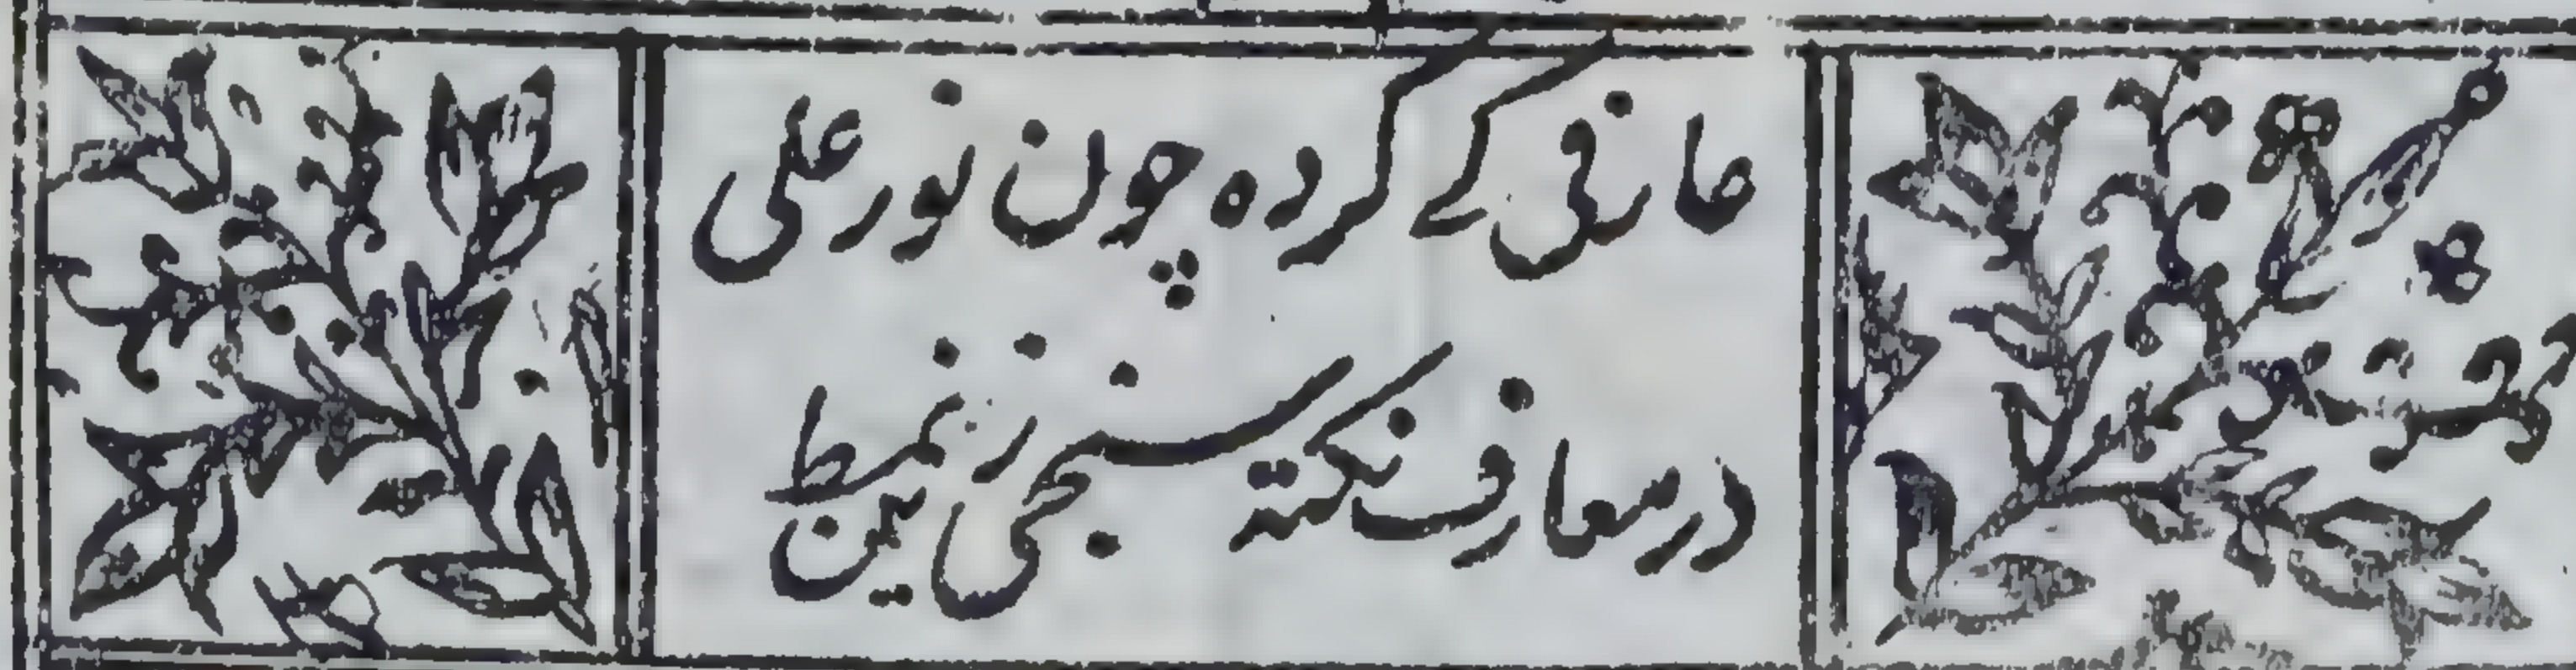 عارفی کے کرده چون نور علی
در معارف نکته سنجی زین نمط